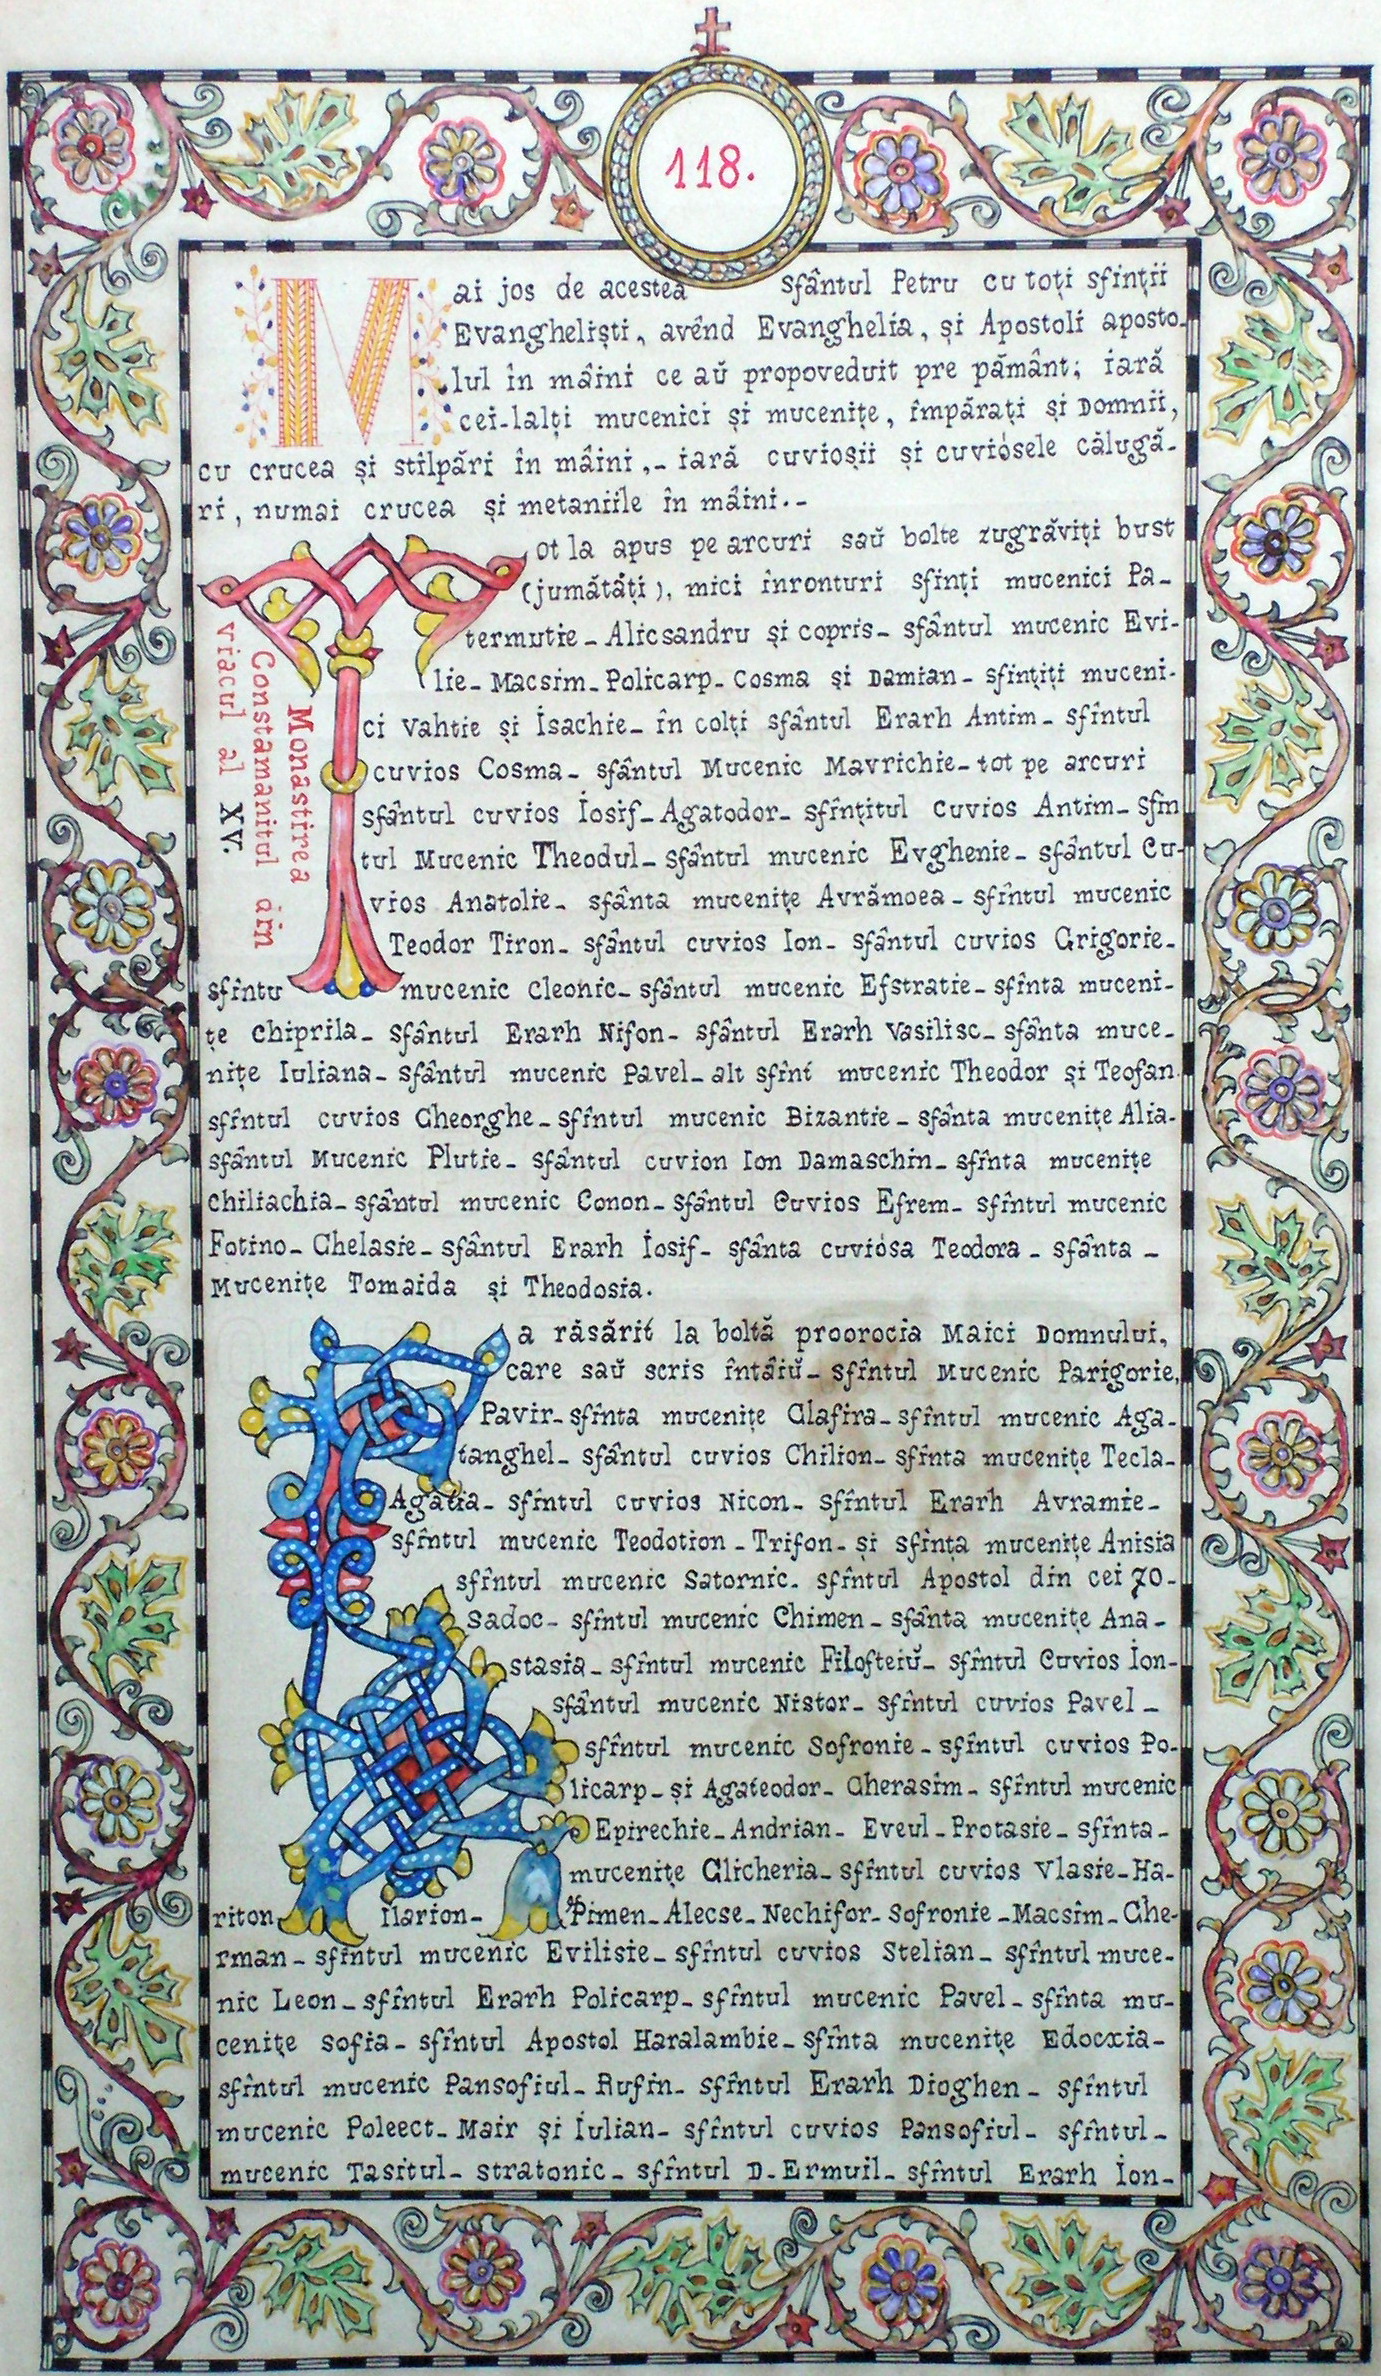 118.
Mai jos de acestea sfântul Petru cu toți sfinții
Evangheliști, avênd Evanghelia, și Apostoli aposto-
lul în mâini ce aŭ propoveduit pre pământ; iară
cei-lalți mucenici și mucenițe, împărați și Domnii,
cu crucea și stilpări în mâini,- iară cuvioșii și cuviósele călugă-
ri, numai crucea și metaniile în mâini.-
Tot la apus pe arcuri saŭ bolte zugrăviți bust
(jumătăți), mici înronturi sfinți mucenici Pa-
termutie- Alicsandru și copris- sfântul mucenic Evi-
lie- Macsim- Policarp- Cosma și Damian- sfințiți muceni-
ci Vahtie și Isachie- în colți sfântul Erarh Antim- sfîntul
cuvios Cosma- sfântul Mucenic Mavrichie- tot pe arcuri
sfântul cuvios Iosif- Agatodor- sfințitul cuvios Antim- sfin
tul Mucenic Theodul- sfântul mucenic Evghenie- sfântul Cu-
vios Anatolie- sfânta mucenițe Avrămoea- sfîntul mucenic
Teodor Tiron- sfântul cuvios Ion- sfântul cuvios Grigorie-
sfîntu mucenic Cleonic- sfântul mucenic Efstratie- sfînta muceni-
țe Chiprila- sfântul Erarh Nifon- sfântul Erarh Vasilisc- sfânta muce-
nițe Iuliana- sfântul mucenic Pavel- alt sfînt mucenic Theodor și Teofan
sfîntul cuvios Gheorghe- sfîntul mucenic Bizantie- sfânta mucenițe Alia-
sfântul Mucenic Plutie- sfântul cuvion Ion Damaschin- sfînta mucenițe
Chiliachia- sfântul mucenic Conon- sfântul Cuvios Efrem- sfîntul mucenic
Fotino- Ghelasie- sfântul Erarh Iosif- sfânta cuviósa Teodora- sfânta-
Mucenițe Tomaida și Theodosia.
Monastirea
Constamanitul din
viacul al XV.
La răsărit la boltă proorocia Maici Domnului,
care saŭ scris întâiŭ- sfîntul Mucenic Parigorie,
Pavir- sfînta mucenițe Glafira- sfîntul mucenic Aga-
tanghel- sfântul cuvios Chilion- sfînta mucenițe Tecla-
Agatia- sfîntul cuvios Nicon- sfîntul Erarh Avramie-
sfîntul mucenic Teodotion- Trifon- și sfînta mucenițe Anisia
sfîntul mucenic Satornic- sfîntul Apostol din cei 70-
Sadoc- sfîntul mucenic Chimen- sfânta mucenițe Ana-
stasia- sfîntul mucenic Filofteiŭ- sfîntul Cuvios Ion-
sfântul mucenic Nistor- sfîntul cuvios Pavel-
sfîntul mucenic Sofronie- sfîntul cuvios Po-
licarp- și Agateodor- Gherasim- sfîntul mucenic
Epirechie- Andrian- Eveul- Protasie- sfînta-
mucenițe Glicheria- sfîntul cuvios Vlasie- Ha-
riton Ilarion- Pimen- Alecse- Nechifor- Sofronie- Macsim- Ghe-
rman- sfîntul mucenic Evilisie- sfîntul cuvios Stelian- sfîntul muce-
nic Leon- sfîntul Erarh Policarp- sfîntul mucenic Pavel- sfînta mu-
cenițe Sofia- sfîntul Apostol Haralambie- sfînta mucenițe Edocxia-
sfîntul mucenic Pansofiul- Rufin- sfîntul Erarh Dioghen- sfîntul
mucenic Poleect- Mair și Iulian- sfîntul cuvios Pansofiul- sfîntul-
mucenic Tasitul- stratonic- sfîntul D-Ermuil- sfîntul Erarh Ion-